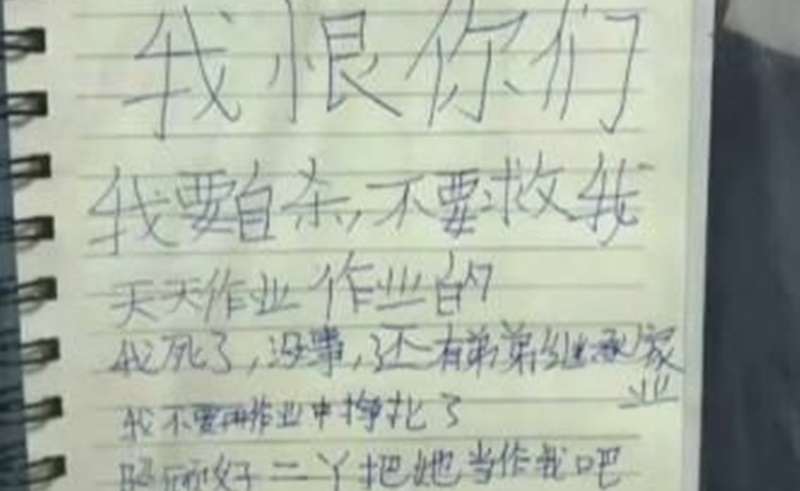 我恨你们
我要自杀,不要救我
天天作业作业的
我死了,没事,还有弟弟继承家业
我不要再作业中挣扎了
照顾好二丫把她当作我吧